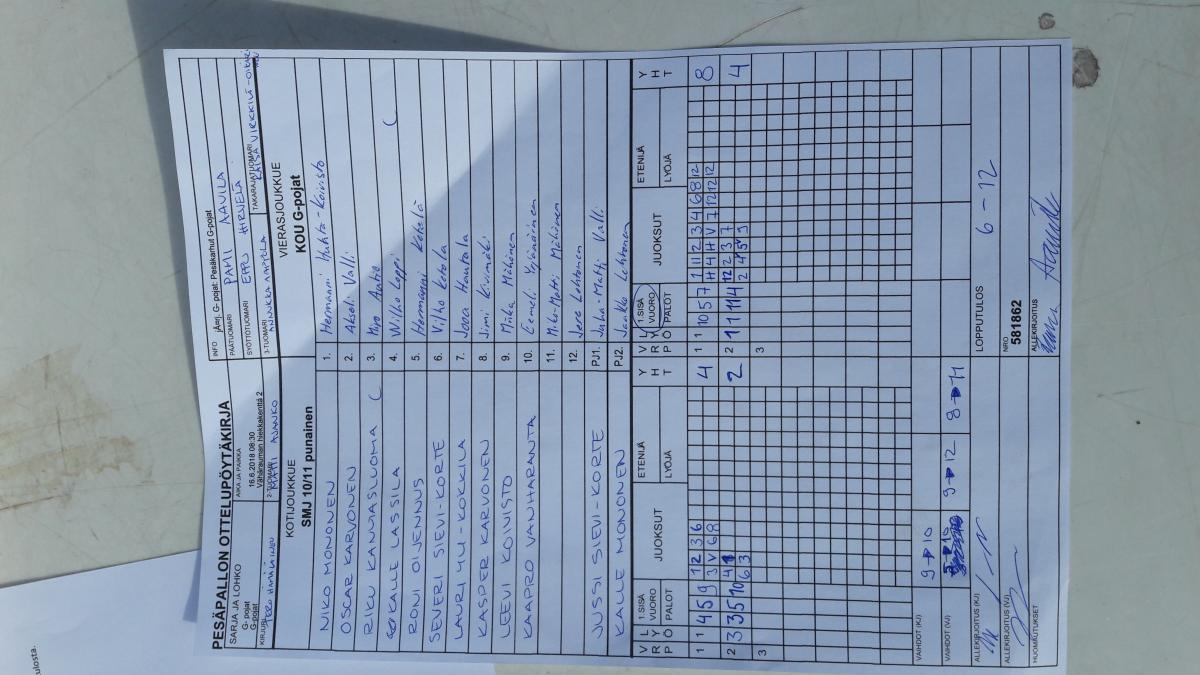 PESÄPALLON OTTELUPÖYTÄKIRJA
SARJA JA LOHKO
G- pojat
G-pojat
AIKA JA PAIKKA
16.6.2018 08:30
Vähärauman hiekkakenttä 2
INFO
G- pojat: Pesäkarhut G-pojat
PÄÄTUOMARI
PAMI AAVILA
SYÖTTÖTUOMARI
EPPU HIRVELÄ
KIRJURI
2-TUOMARI
MATTI
3-TUOMARI
TAKARAJATUOMARI
KAISA
KOTIJOUKKUE
SMJ 10/11 punainen
VIERASJOUKKUE
KOU G-pojat
NIKO MONONEN 1. Hermanni Huhta-Koivisto
OSCAR KARVONEN 2. Akseli Valli
RIKU KANGASLUOMA ( 3. Miyo Antio
KALLE LASSILA 4. Wilho Leppi (
RONI OIJENNUS 5. Hermanni Ketelä
SEVERI SIEVI-KORTE 6. Vilho Ketola
LAURI YLI-KOKKILA 7. Joca Hautala
KASPER KARVONEN 8. Simi Kivimäki
LEEVI KOIVISTO 9. Miika Mähönen
KAAPRO VANHARANTA 10. Eemeli Yijänäinen
11. Miko-Matti Mähönen
12. Jere Lehtonen
JUSSI SIEVI-KORTE PJ1. Juha-Matti Valli
KALLE MONONEN PJ2. Jaakko Lehtonen
V L 1.SISÄ JUOKSUT ETENIJÄ Y V L 1.SISÄ JUOKSUT ETENIJÄ Y
R Y VUORO H R Y VUORO H
P Ö PALOT LYÖJÄ T P Ö PALOT LYÖJÄ T
1 1 4 5 9 1 2 3 6 4 1 1 10 5 7 1 11 2 3 4 6 8 12 8
3 V 6 8 H 4 H V 7 12 12 12
2 3 3 5 10 4 2 2 1 1 11 4 12 2 3 7 4
6 3 2 4 5 9
3 3
VAIHDOT (KJ)
9→10
VAIHDOT (VJ)
9→12 8→11
ALLEKIRJOITUS (KJ)
LOPPUTULOS
6-12
ALLEKIRJOITUS (VJ)
NRO
581862
HUOMAUTUKSET
ALLEKIRJOITUS
ulosta.